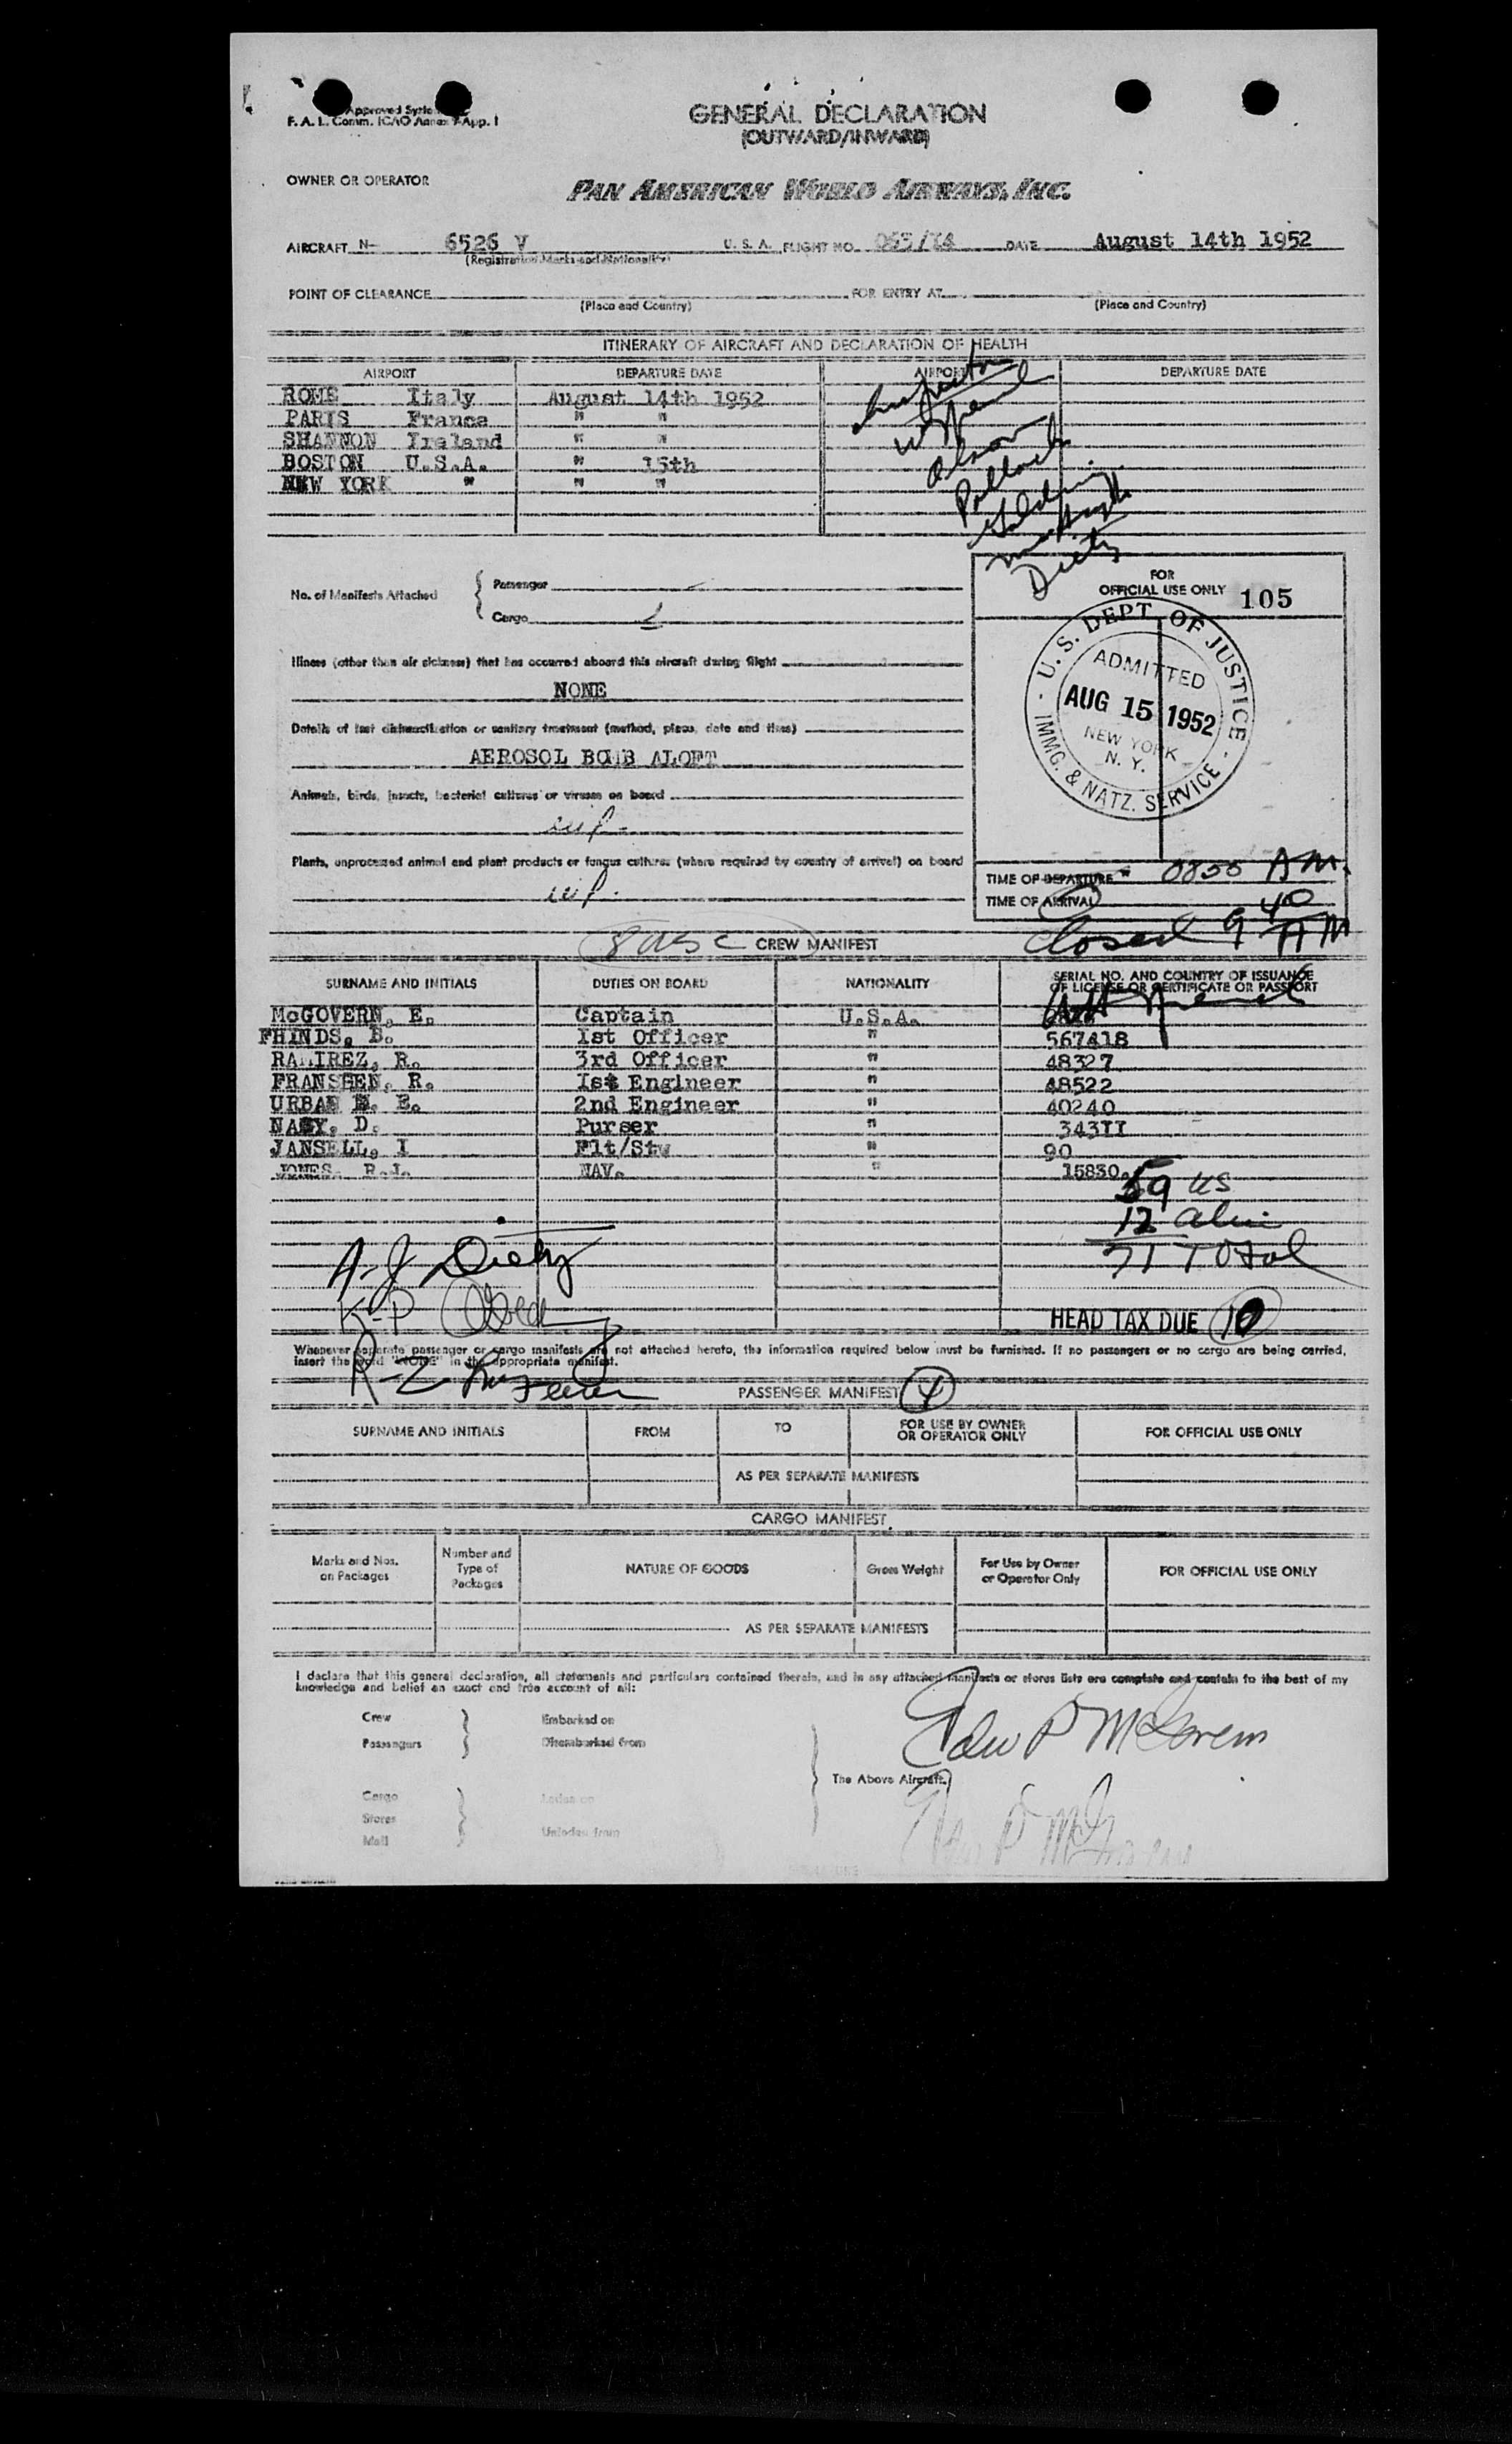 Approved
F. A. L. Comm. ICAO Annex 9 App. I
GENERAL DECLARATION
(OUTWARD/INWARD)
OWNER OR OPERATOR
PAN AMERICAN WORLD AIRWAYS, INC.
AIRCRAFT N- 6526 V U. S. A. FLIGHT NO. DATE August 14th 1952
(Registration Marks and Nationality)
POINT OF CLEARANCE FOR ENTRY AT
(Place and Country) (Place and Country)
ITINERARY OF AIRCRAFT AND DECLARATION OF HEALTH
AIRPORT DEPARTURE DATE AIRPORT DEPARTURE DATE
ROME Italy August 14th 1952
PARIS France " "
SHANNON Ireland " "
BOSTON U.S.A. " 15th
NEW YORK " " "
Olson
Pollack
Dietz
No. of Manifests Attached
Passenger
Cargo
FOR
OFFICIAL USE ONLY 105
U. S. DEPT. OF JUSTICE
ADMITTED
AUG 15 1952
NEW YORK
N. Y.
IMMG. & NATZ. SERVICE
Illness (other than air sickness) that has occurred aboard this aircraft during flight
NONE
Details of last disinsectization or sanitary treatment (method, place, date and time)
AEROSOL BOMB ALOFT
Animals, birds, insects, bacterial cultures or viruses on board
Plants, unprocessed animal and plant products or fungus cultures (where required by country of arrival) on board
TIME OF DEPARTURE AM.
TIME OF ARRIVAL
Closed 9 40 AM
CREW MANIFEST
SURNAME AND INITIALS DUTIES ON BOARD NATIONALITY SERIAL NO. AND COUNTRY OF ISSUANCE
OF LICENSE OR CERTIFICATE OR PASSPORT
McGOVERN, E. Captain U.S.A.
FHINDS, B. 1st Officer " 567418
RAMIREZ, R. 3rd Officer " 48327
FRANSEEN, R. Ist Engineer " 48522
URBAN E. 2nd Engineer " 40240
D. Purser " 343II
JANSELL, I Flt/Stw " 90
JONES. R.J. NAV. " 15830
59 US
12 alien
71 Total
A-J Dietz
K-P
R-Z
HEAD TAX DUE 10
Whenever separate passenger or cargo manifests are not attached hereto, the information required below must be furnished. If no passengers or no cargo are being carried,
insert the word "NONE" in the appropriate manifest.
PASSENGER MANIFEST
SURNAME AND INITIALS FROM TO FOR USE BY OWNER
OR OPERATOR ONLY FOR OFFICIAL USE ONLY
AS PER SEPARATE MANIFESTS
CARGO MANIFEST
Marks and Nos.
on Packages Number and
Type of
Packages NATURE OF GOODS Gross Weight For Use by Owner
or Operator Only FOR OFFICIAL USE ONLY
AS PER SEPARATE MANIFESTS
I declare that this general declaration, all statements and particulars contained therein, and in any attached manifests or stores lists are complete and contain to the best of my
knowledge and belief an exact and true account of all:
Crew Embarked on
Passengers Disembarked from
Edw P McGovern
The Above Aircraft.
Cargo Laden on
Stores
Mail Unladen from
Edw P McGovern